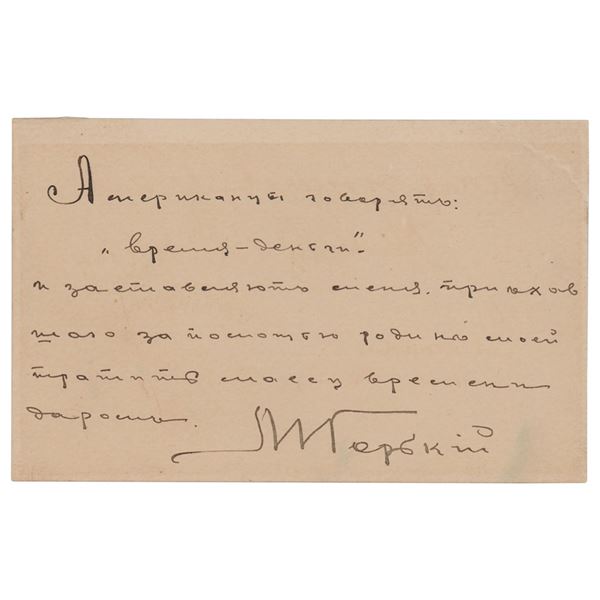 Американцы говорятъ:
„время–деньги“–
и заставляютъ меня, пріѣхав
шаго за помощью родинѣ моей
тратить массу времени
даромъ.
М Горькій